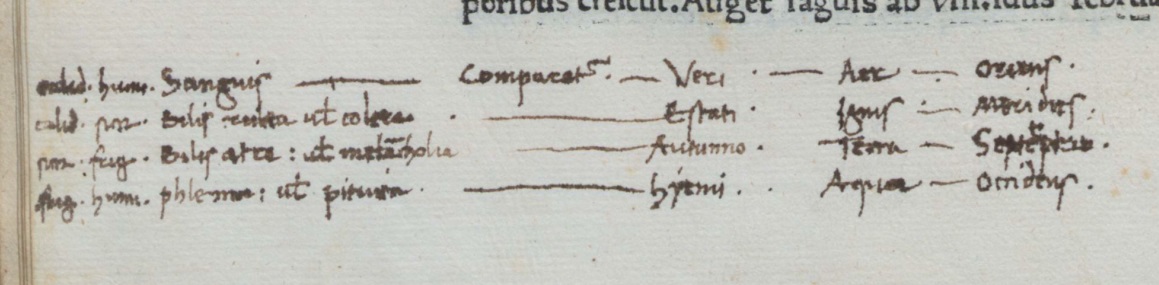 poribus creſcūt. Auget ſaguis ab viii. idus Februa
calid. hum. Sanguis — Comparatr. — Veri . — Aer — oriens .
calid. sicc. Bilis rubea ul̄ colera . — Estati . Ignis : — Meridies .
sicc. frig. Bilis atra : ul̄ melācholia — Autunno . — Terra —
frig. hum. phlegma : ul̄ pituita . — hyemi . . Aequa — Occidens .